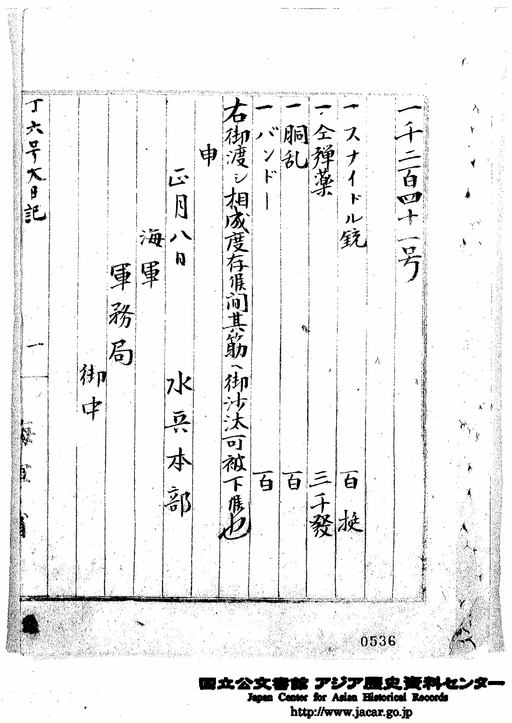 一千二百四十一号
一 スナイドル銃 百挺
一 仝弾薬 三千發
一 胴乱 百
一 バンドー 百
右御渡シ相成度存候間其筋ヘ御沙汰可被下候也
申
正月八日 水兵本部
海軍
軍務局
御中
丁六号大日記
一
海軍省
0536
国立公文書館 アジア歴史資料センター
Japan Center for Asian Historical Records
http://www.jacar.go.jp